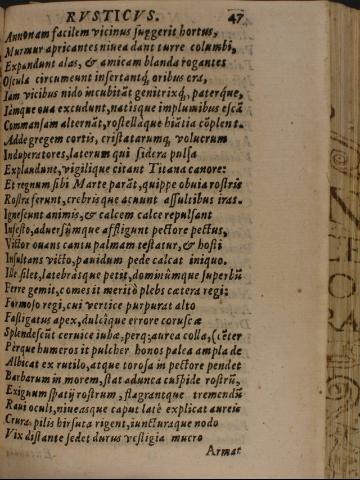 RVSTICVS. 47
Annonam facilem vicinus suggerit hortus,
Murmur apricantes niuea dant turre columbi,
Expandunt alas, & amicam blanda rogantes
Oscula circumeunt insertantq́; oribus ora,
Iam vicibus nido incubitāt genitrixq́;, paterque,
Iámque oua excudunt, natisque implumibus escā
Commansam alternāt, rostelláque hiātia cōplent.
Adde gregem cortis, cristatarumq́; volucrum
Induperatores, laterum qui sidera pulsa
Explaudunt, vigilique citant Titana canore:
Et regnum sibi Marte parāt, quippe obuia rostris
Rostra ferunt, crebrisque acuunt assultibus iras.
Ignescunt animis, & calcem calce repulsant
Infesto, aduersúmque affligunt pectore pectus,
Victor ouans cantu palmam testatur, & hosti
Insultans victo, pauidum pede calcat iniquo.
Ille silet, latebrásque petit, dominúmque superbū
Ferre gemit, comes it meritò plebs cætera regi:
Formoso regi, cui vertice purpurat alto
Fastigatus apex, dulcíque errore coruscæ
Splendescūt ceruice iubæ, perq; aurea colla, (cēter
Pérque humeros it pulcher honos palea ampla de
Albicat ex rutilo, atque torosa in pectore pendet
Barbarum in morem, stat adunca cuspide rostrū,
Exiguum spatij rostrum, flagrantque tremendū
Raui oculi, niueasque caput latè explicat aureis
Crura pilis hirsuta rigent, iuncturaque nodo
Vix distante sedet durus vestigia mucro
Armat